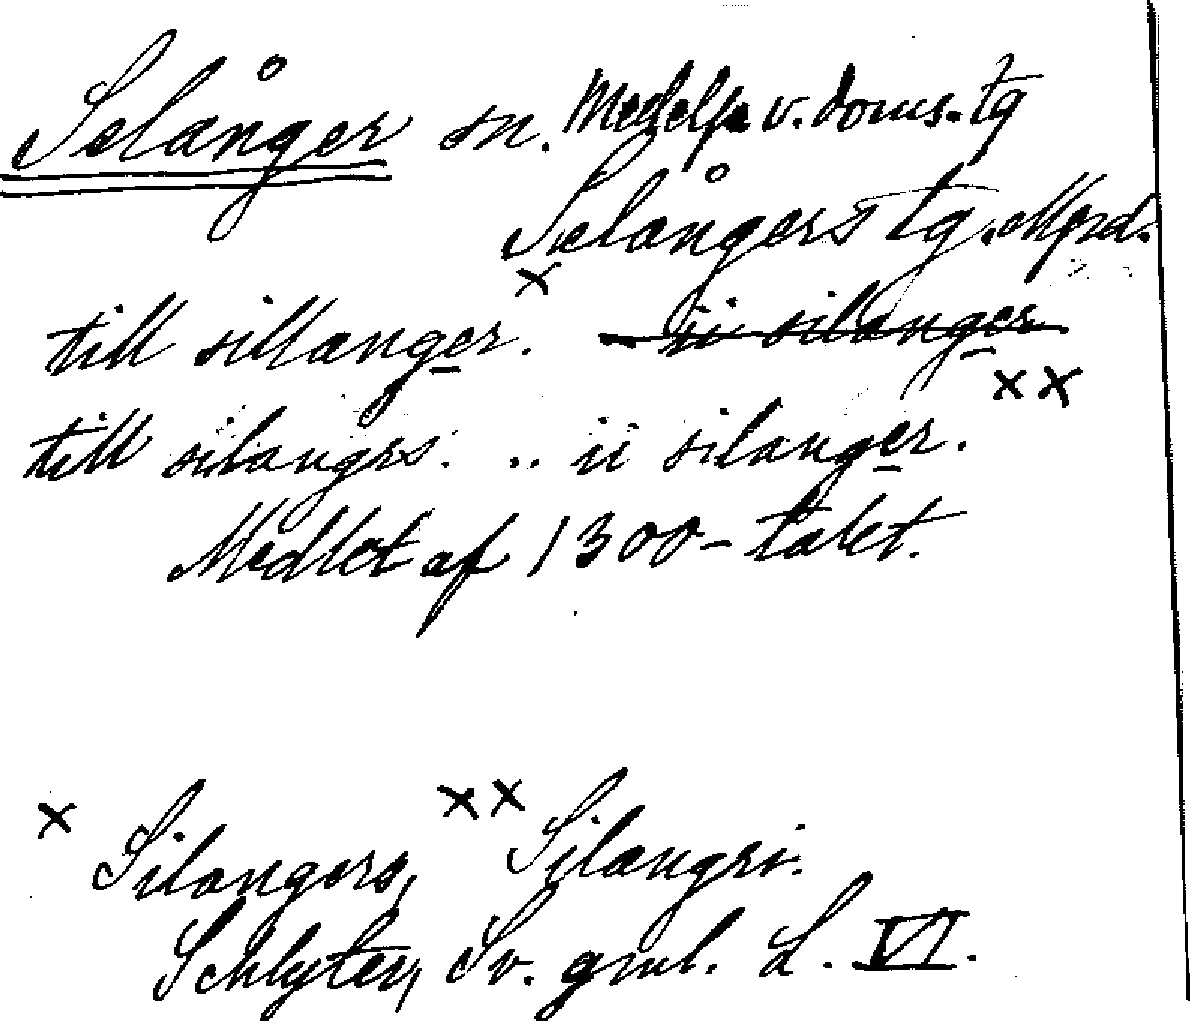 Selånger sn. Medelp. v. doms. tg
Selångers tg. Mpd.
till sillanger. ii silanger
x
xx
till silangrs. .. ii silanger.
Medltet af 1300-talet.
x Silangers, xx Silangri.
Schlyter, Sv. gml. L. VI.